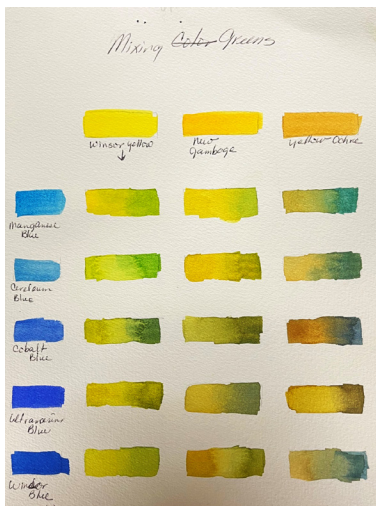 Mixing Color Greens
Winsor yellow
New
Gamboge
Yellow Ochre
Manganese
Blue
Cerulean
Blue
Cobalt
Blue
Ultramarine
Blue
Winsor
Blue